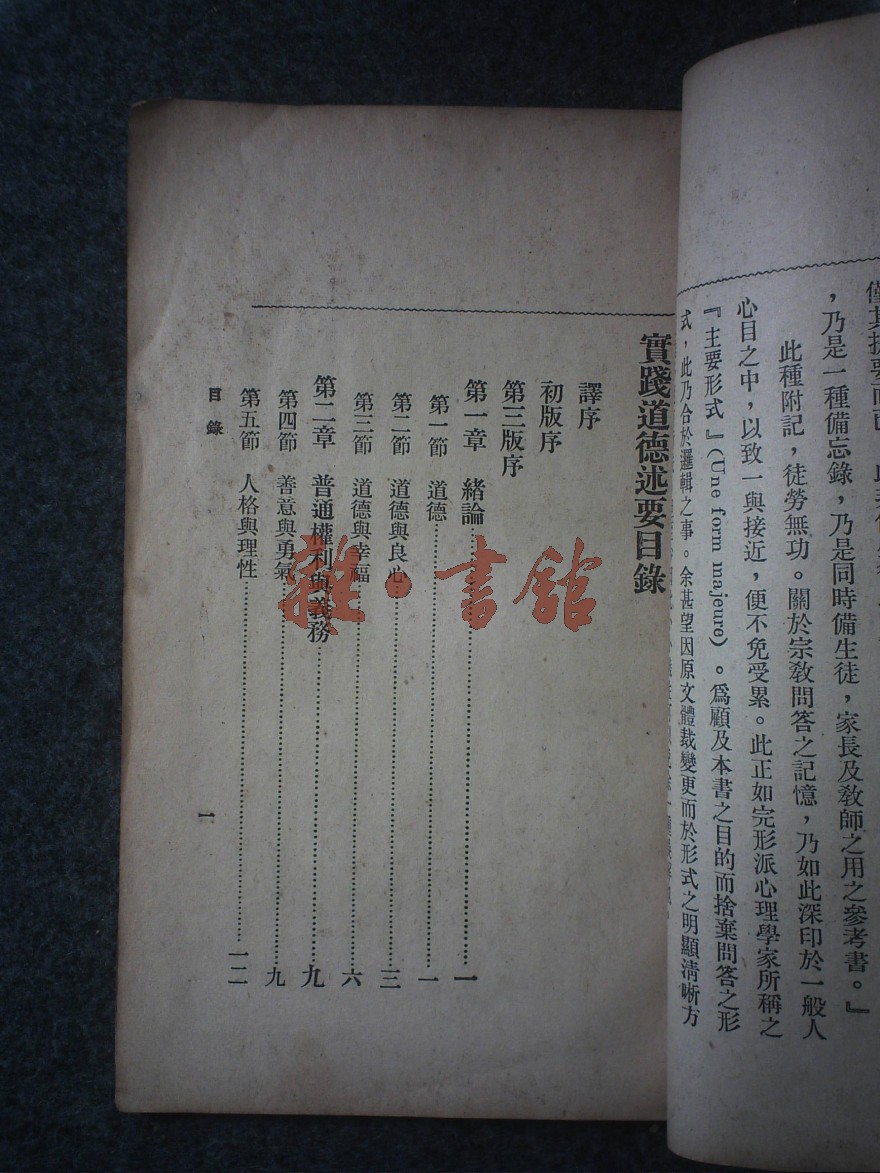 ，乃是一種備忘錄，乃是同時備生徒，家長及教師之用之參考書。』
此種附記，徒勞無功。關於宗教問答之記憶，乃如此深印於一般人
心目之中，以致一與接近，便不免受累。此正如完形派心理學家所稱之
『主要形式』(Une form majeure)。爲顧及本書之目的而捨棄問答之形
式，此乃合於邏輯之事。余甚望因原文體裁變更而於形式之明顯清晰方
實踐道德述要目錄
譯序
初版序
第三版序
第一章　緒論……一
第一節　道德……一
第二節　道德與良心……三
第三節　道德與幸福……六
第二章　普通權利與義務……九
第四節　善意與勇氣……九
第五節　人格與理性……一二
目錄
一
雜·書舘